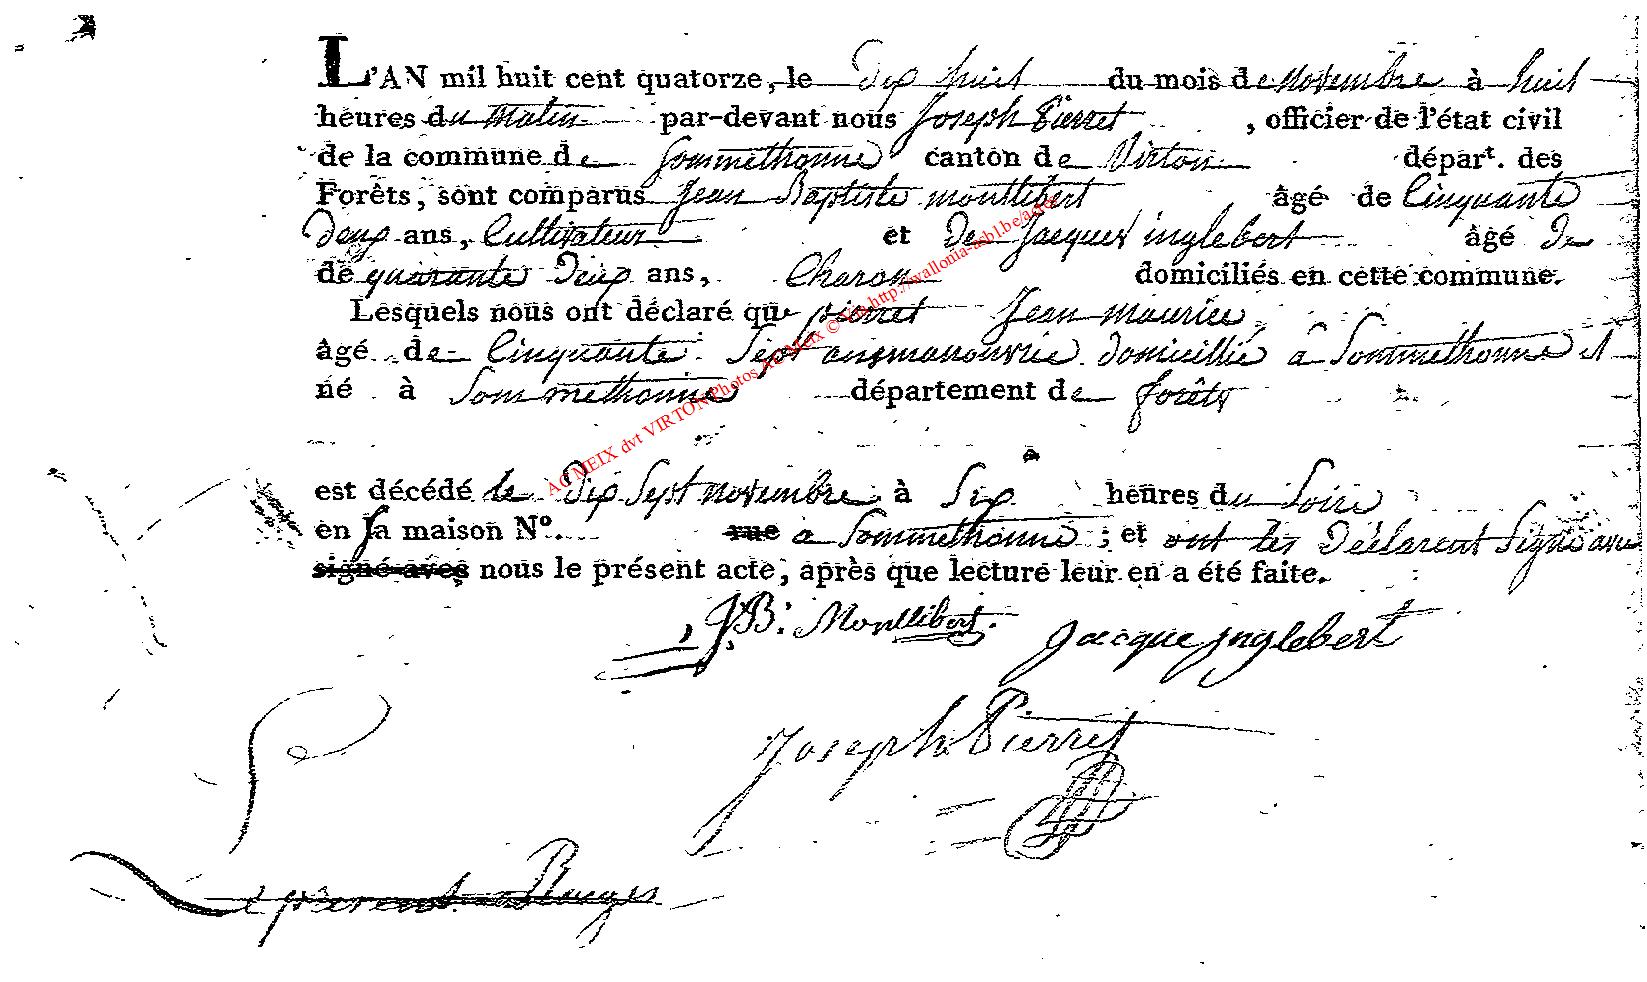 L'AN mil huit cent quatorze, le Dix huit du mois de Novembre à huit
heures du Matin par-devant nous Joseph Pierret, officier de l'état civil
de la commune de Sommethonne canton de Virton départ. des
Forêts, sont comparus Jean Baptiste montlibert âgé de Cinquante
Deux ans, Cultivateur et De Jacques inglebert âgé De
de quarante Deux ans, Charon domiciliés en cette commune.
Lesquels nous ont déclaré que pierret Jean maurice
âgé de Cinquante Sept ans manouvrie domicillié à Sommethonne et
né à Sommethonne département de forêts
est décédé le Dix Sept novembre à Six heures du Soire
en Sa maison N°. rue a Sommethonne ; et ont les Déclarent Signé avec
signé avec nous le présent acte, après que lecture leur en a été faite.
J.B. Montlibert. Jacque Jnglebert
Joseph Pierret
AC MEIX dvt VIRTON Photos AC Meix © Via http://wallonia-asbl.be/actes